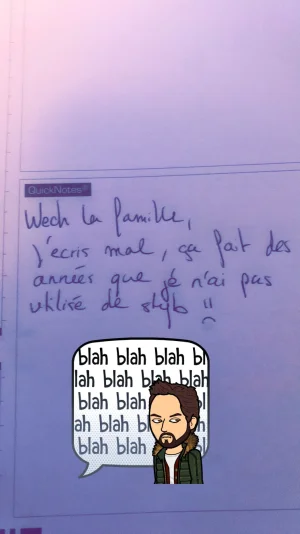 QuickNotes®
Wech la famille,
j'écris mal, ça fait des
années que jé n'ai pas
utilisé de stylo !!
blah blah blah bl
lah blah blah blah
blah blah bl
ah blah bl
blah blah b